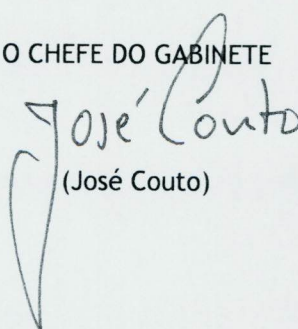 O CHEFE DO GABINETE
José Couto
(José Couto)